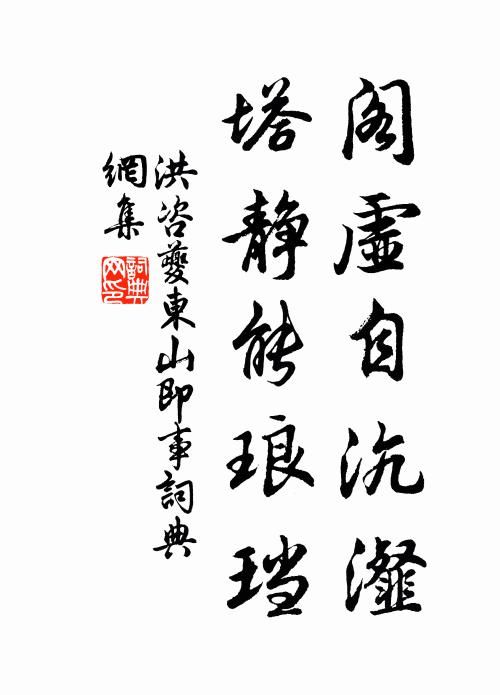 阁虚自沆瀣
塔静能琅珰
洪咨夔東山即事詞典
網集
詞典網印